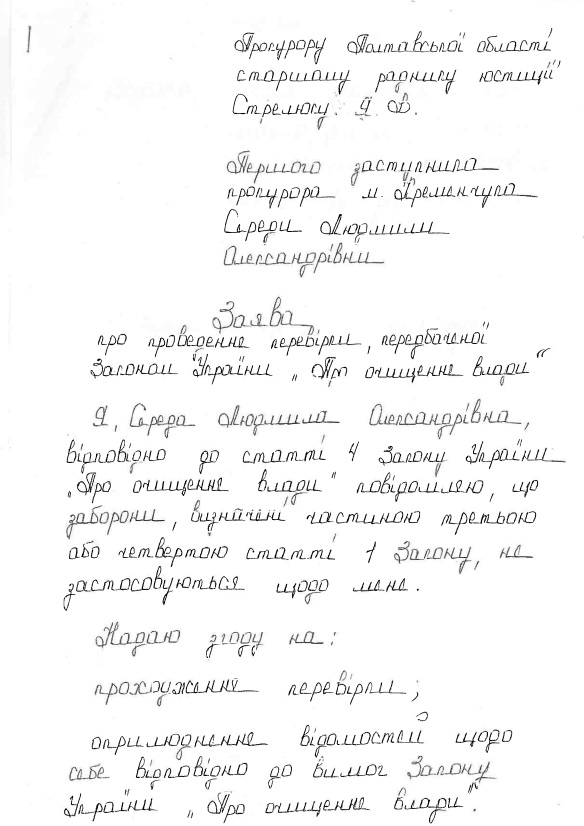 Прокурору Полтавської області
старшому раднику юстиції
Стрелюку. Я. В.
Першого заступника
прокурора м. Кременчука
Середи Людмили
Олександрівни
Заява
про проведення перевірки, передбаченої
Законом України „Про очищення влади“
Я, Середа Людмила Олександрівна,
відповідно до статті 4 Закону України
„Про очищення влади" повідомляю, що
заборони, визначені частиною третьою
або четвертою статті 1 Закону, не
застосовуються щодо мене.
Надаю згоду на:
проходження перевірки;
оприлюднення відомостей щодо
себе відповідно до вимог Закону
України „Про очищення влади".